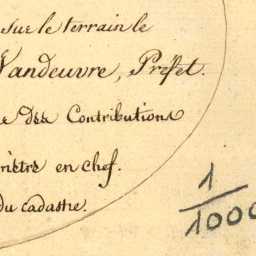 sur le terrain le
Vandeuvre, Préfet.
des Contributions
en chef.
du cadastre.
1/1000